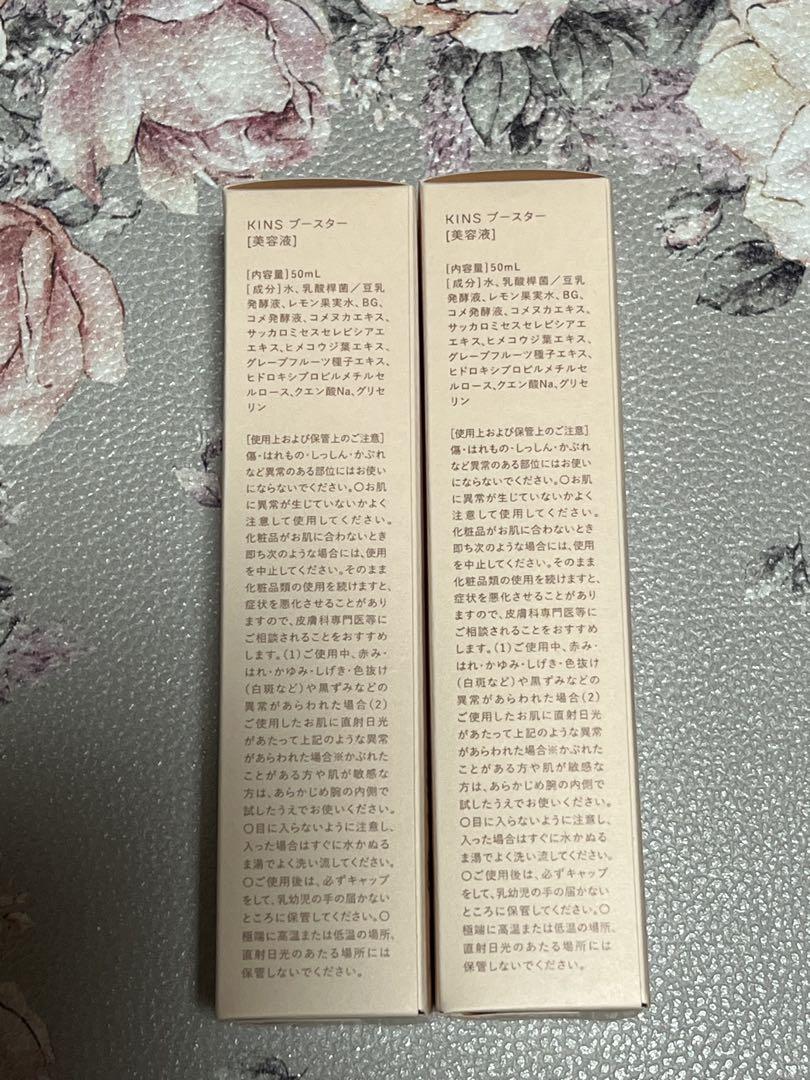 KINS ブースター
[美容液]
[内容量]50mL
[成分]水、乳酸桿菌/豆乳
発酵液、レモン果実水、BG、
コメ発酵液、コメヌカエキス、
サッカロミセスセレビシアエ
エキス、ヒメコウジ葉エキス、
グレープフルーツ種子エキス、
ヒドロキシプロピルメチルセ
ルロース、クエン酸Na、グリセ
リン
[使用上および保管上のご注意]
傷・はれもの・しっしん・かぶれ
など異常のある部位にはお使い
にならないでください。〇お肌
に異常が生じていないかよく
注意して使用してください。
化粧品がお肌に合わないとき
即ち次のような場合には、使用
を中止してください。そのまま
化粧品類の使用を続けますと、
症状を悪化させることがあり
ますので、皮膚科専門医等に
ご相談されることをおすすめ
します。(1)ご使用中、赤み・
はれ・かゆみ・しげき・色抜け
(白斑など)や黒ずみなどの
異常があらわれた場合(2)
ご使用したお肌に直射日光
があたって上記のような異常
があらわれた場合※かぶれた
ことがある方や肌が敏感な
方は、あらかじめ腕の内側で
試したうえでお使いください。
〇目に入らないように注意し、
入った場合はすぐに水かぬる
ま湯でよく洗い流してください。
〇ご使用後は、必ずキャップ
をして、乳幼児の手の届かない
ところに保管してください。〇
極端に高温または低温の場所、
直射日光のあたる場所には
保管しないでください。
KINS ブースター
[美容液]
[内容量]50mL
[成分]水、乳酸桿菌/豆乳
発酵液、レモン果実水、BG、
コメ発酵液、コメヌカエキス、
サッカロミセスセレビシアエ
エキス、ヒメコウジ葉エキス、
グレープフルーツ種子エキス、
ヒドロキシプロピルメチルセ
ルロース、クエン酸Na、グリセ
リン
[使用上および保管上のご注意]
傷・はれもの・しっしん・かぶれ
など異常のある部位にはお使い
にならないでください。〇お肌
に異常が生じていないかよく
注意して使用してください。
化粧品がお肌に合わないとき
即ち次のような場合には、使用
を中止してください。そのまま
化粧品類の使用を続けますと、
症状を悪化させることがあり
ますので、皮膚科専門医等に
ご相談されることをおすすめ
します。(1)ご使用中、赤み・
はれ・かゆみ・しげき・色抜け
(白斑など)や黒ずみなどの
異常があらわれた場合(2)
ご使用したお肌に直射日光
があたって上記のような異常
があらわれた場合※かぶれた
ことがある方や肌が敏感な
方は、あらかじめ腕の内側で
試したうえでお使いください。
〇目に入らないように注意し、
入った場合はすぐに水かぬる
ま湯でよく洗い流してください。
〇ご使用後は、必ずキャップ
をして、乳幼児の手の届かない
ところに保管してください。〇
極端に高温または低温の場所、
直射日光のあたる場所には
保管しないでください。